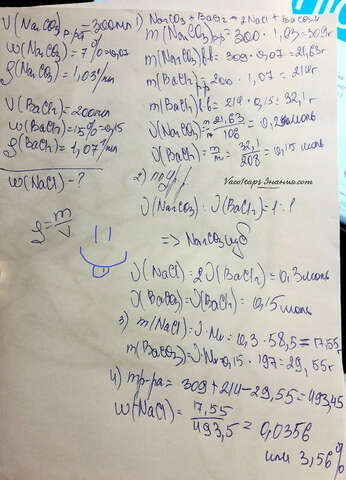 V(Na₂CO₃)р-ра = 300мл
w(Na₂CO₃) = 7% = 0,07
ρ(Na₂CO₃) = 1,03г/мл
V(BaCl₂) = 200мл
w(BaCl₂) = 15% = 0,15
ρ(BaCl₂) = 1,07г/мл
w(NaCl) = ?
ρ = m/V
1) Na₂CO₃ + BaCl₂ = 2NaCl + BaCO₃↓
m(Na₂CO₃)р-ра = 300 · 1,03 = 309г
m(Na₂CO₃)в-ва = 309 · 0,07 = 21,63г
m(BaCl₂)р-р = 200 · 1,07 = 214г
m(BaCl₂)в-ва = 214 · 0,15 = 32,1г
ν(Na₂CO₃) = m/M = 21,63/106 = 0,2 моль
ν(BaCl₂) = m/M = 32,1/208 = 0,15 моль
VacoHapsЗнания.com
2) по ур.
ν(Na₂CO₃) : ν(BaCl₂) = 1 : 1
=> Na₂CO₃ изб
ν(NaCl) = 2ν(BaCl₂) = 0,3моль
ν(BaCO₃) = ν(BaCl₂) = 0,15моль
3) m(NaCl) = ν · Mr = 0,3 · 58,5 = 17,55г
m(BaCO₃) = ν · Mr = 0,15 · 197 = 29,55г
4) mр-ра = 309 + 214 - 29,55 = 493,45
w(NaCl) = 17,55/493,5 = 0,0356
или 3,56%